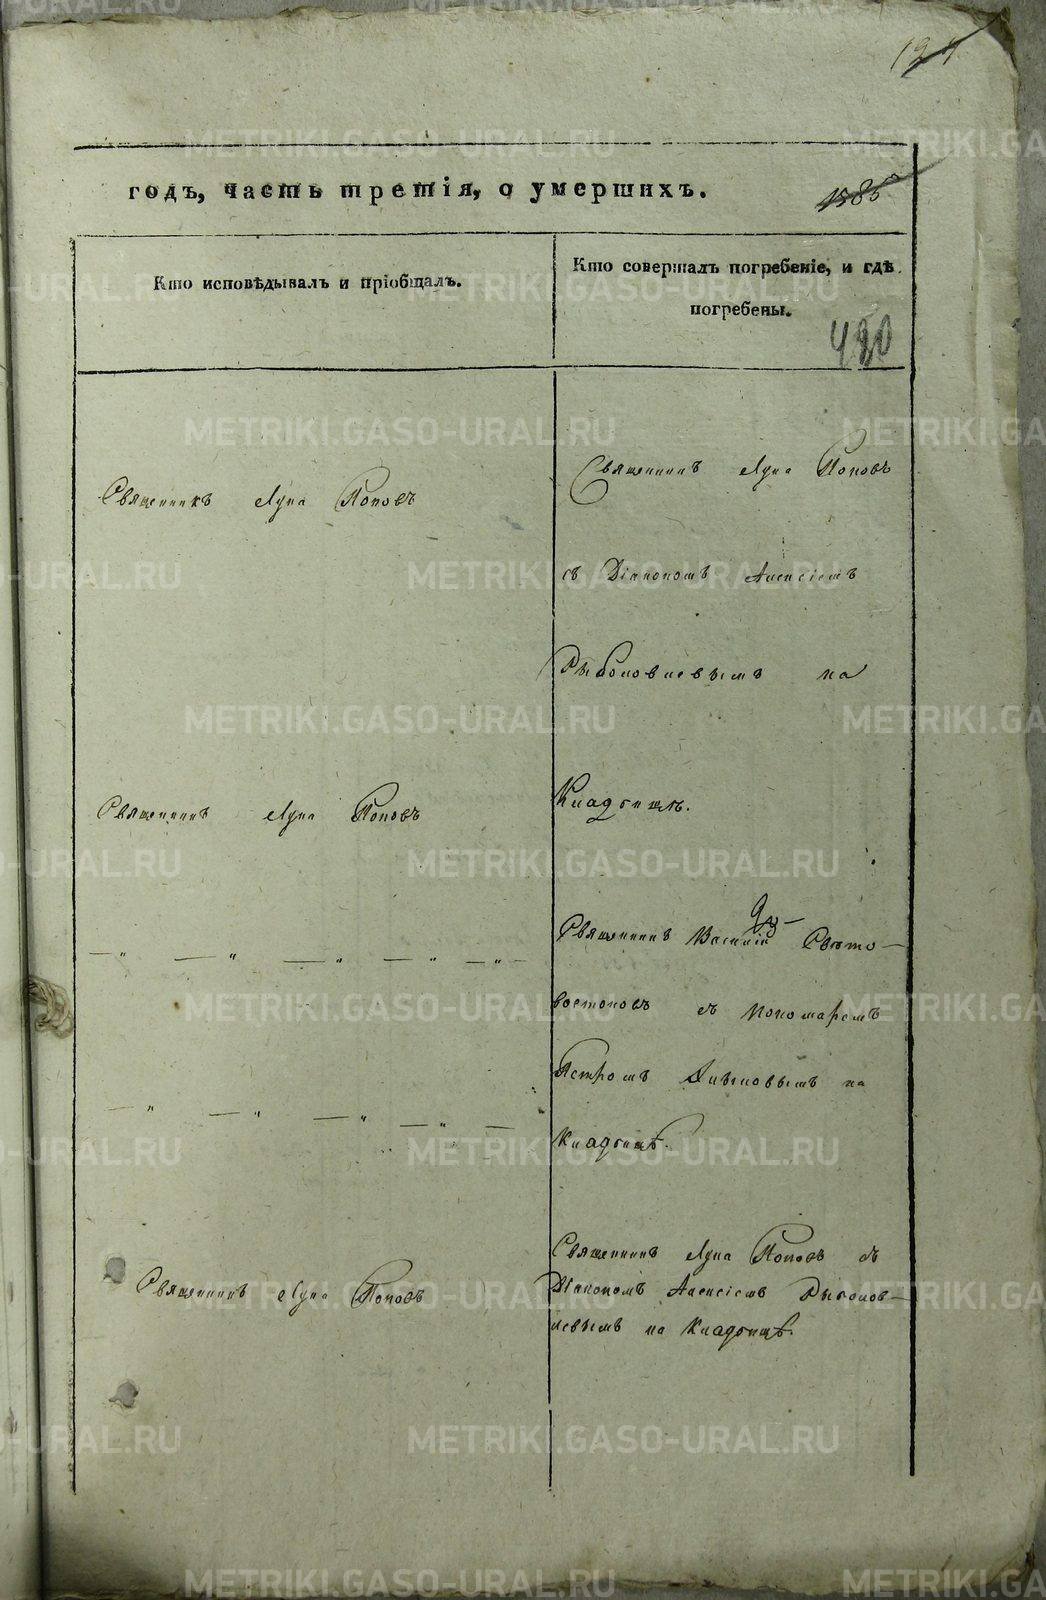 годъ, часть третія, о умершихъ.
1585
Кто исповѣдывалъ и пріобщалъ.
Кто совершалъ погребеніе, и гдѣ
погребены.
480
Священникъ Лука Поповъ
Священникъ Лука Поповъ
съ Діакономъ Алексіемъ
Рыболовлевымъ на
Кладбищѣ.
Священникъ Лука Поповъ
Священникъ Василій Свѣто-
востоковъ съ пономаремъ
Петромъ на
Кладбищѣ.
Священникъ Лука Поповъ
Священникъ Лука Поповъ съ
Діакономъ Алексіемъ Рыболов-
левымъ на Кладбищѣ.
METRIKI.GASO-URAL.RU